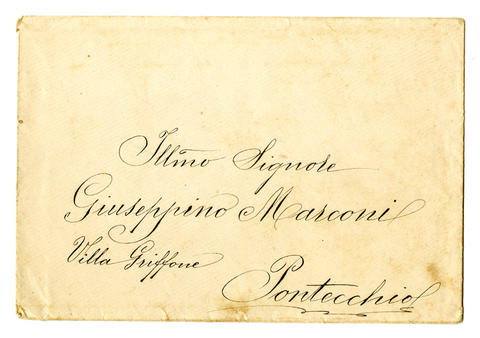 Illmo Signore
Giuseppino Marconi
Villa Griffone
Pontecchio